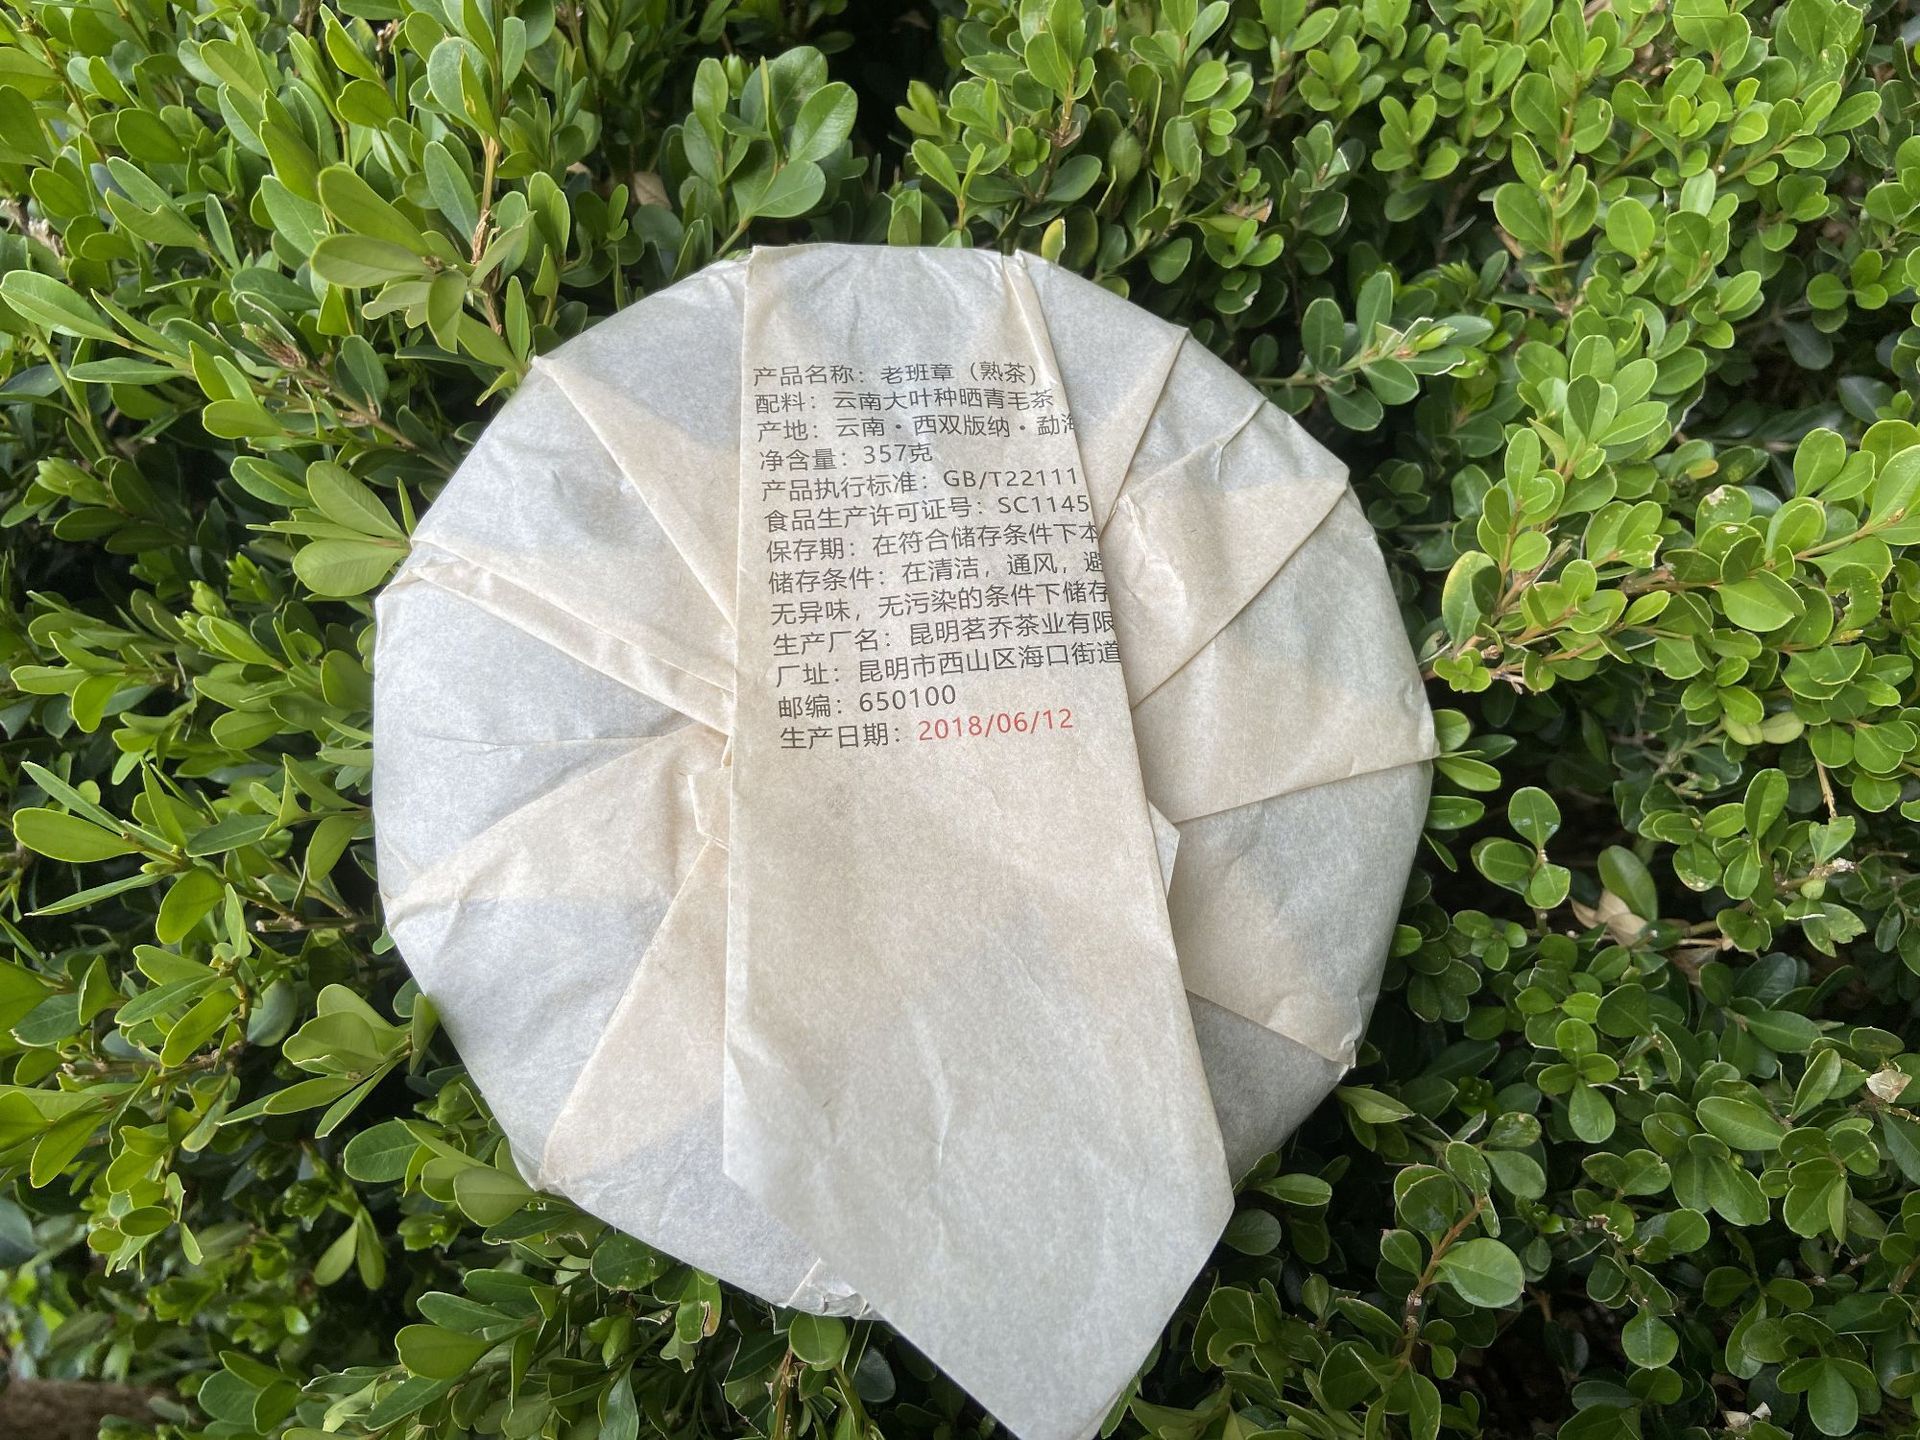 产品名称：老班章（熟茶）
配料：云南大叶种晒青毛茶
产地：云南·西双版纳·勐海
净含量：357克
产品执行标准：GB/T22111
食品生产许可证号：SC1145
保存期：在符合储存条件下本
储存条件：在清洁，通风，避
无异味，无污染的条件下储存
生产厂名：昆明茗乔茶业有限
厂址：昆明市西山区海口街道
邮编：650100
生产日期：2018/06/12